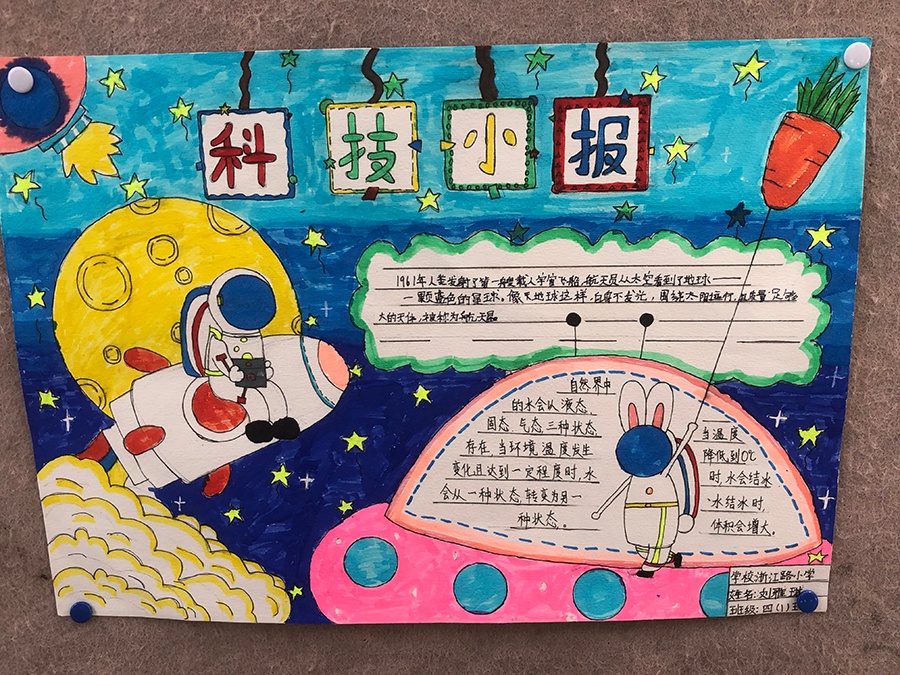 科技小报
1961年人类发射了第一艘载人宇宙飞船,航天员从太空看到了地球——
一颗蓝色的星球。像地球这样,自身不发光,围绕太阳运行,且质量足够
大的天体,被称为行星
自然界中
的水会以液态、
固态、气态三种状态
存在,当环境温度发生
变化且达到一定程度时,水
会从一种状态,转变为另一
种状态。
当温度
降低到0℃
时,水会结冰
水结冰时,
体积会增大。
学校浙江路小学
姓名:刘雅
班级:四(1)